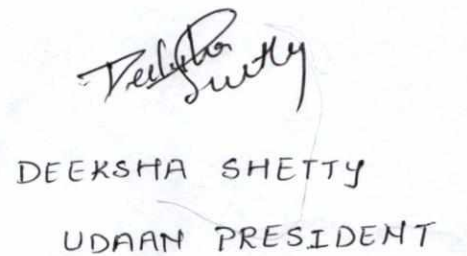 Deeksha
Shetty
DEEKSHA SHETTY
UDAAN PRESIDENT